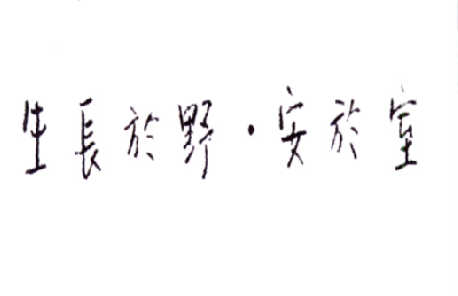 生長於野·安於室